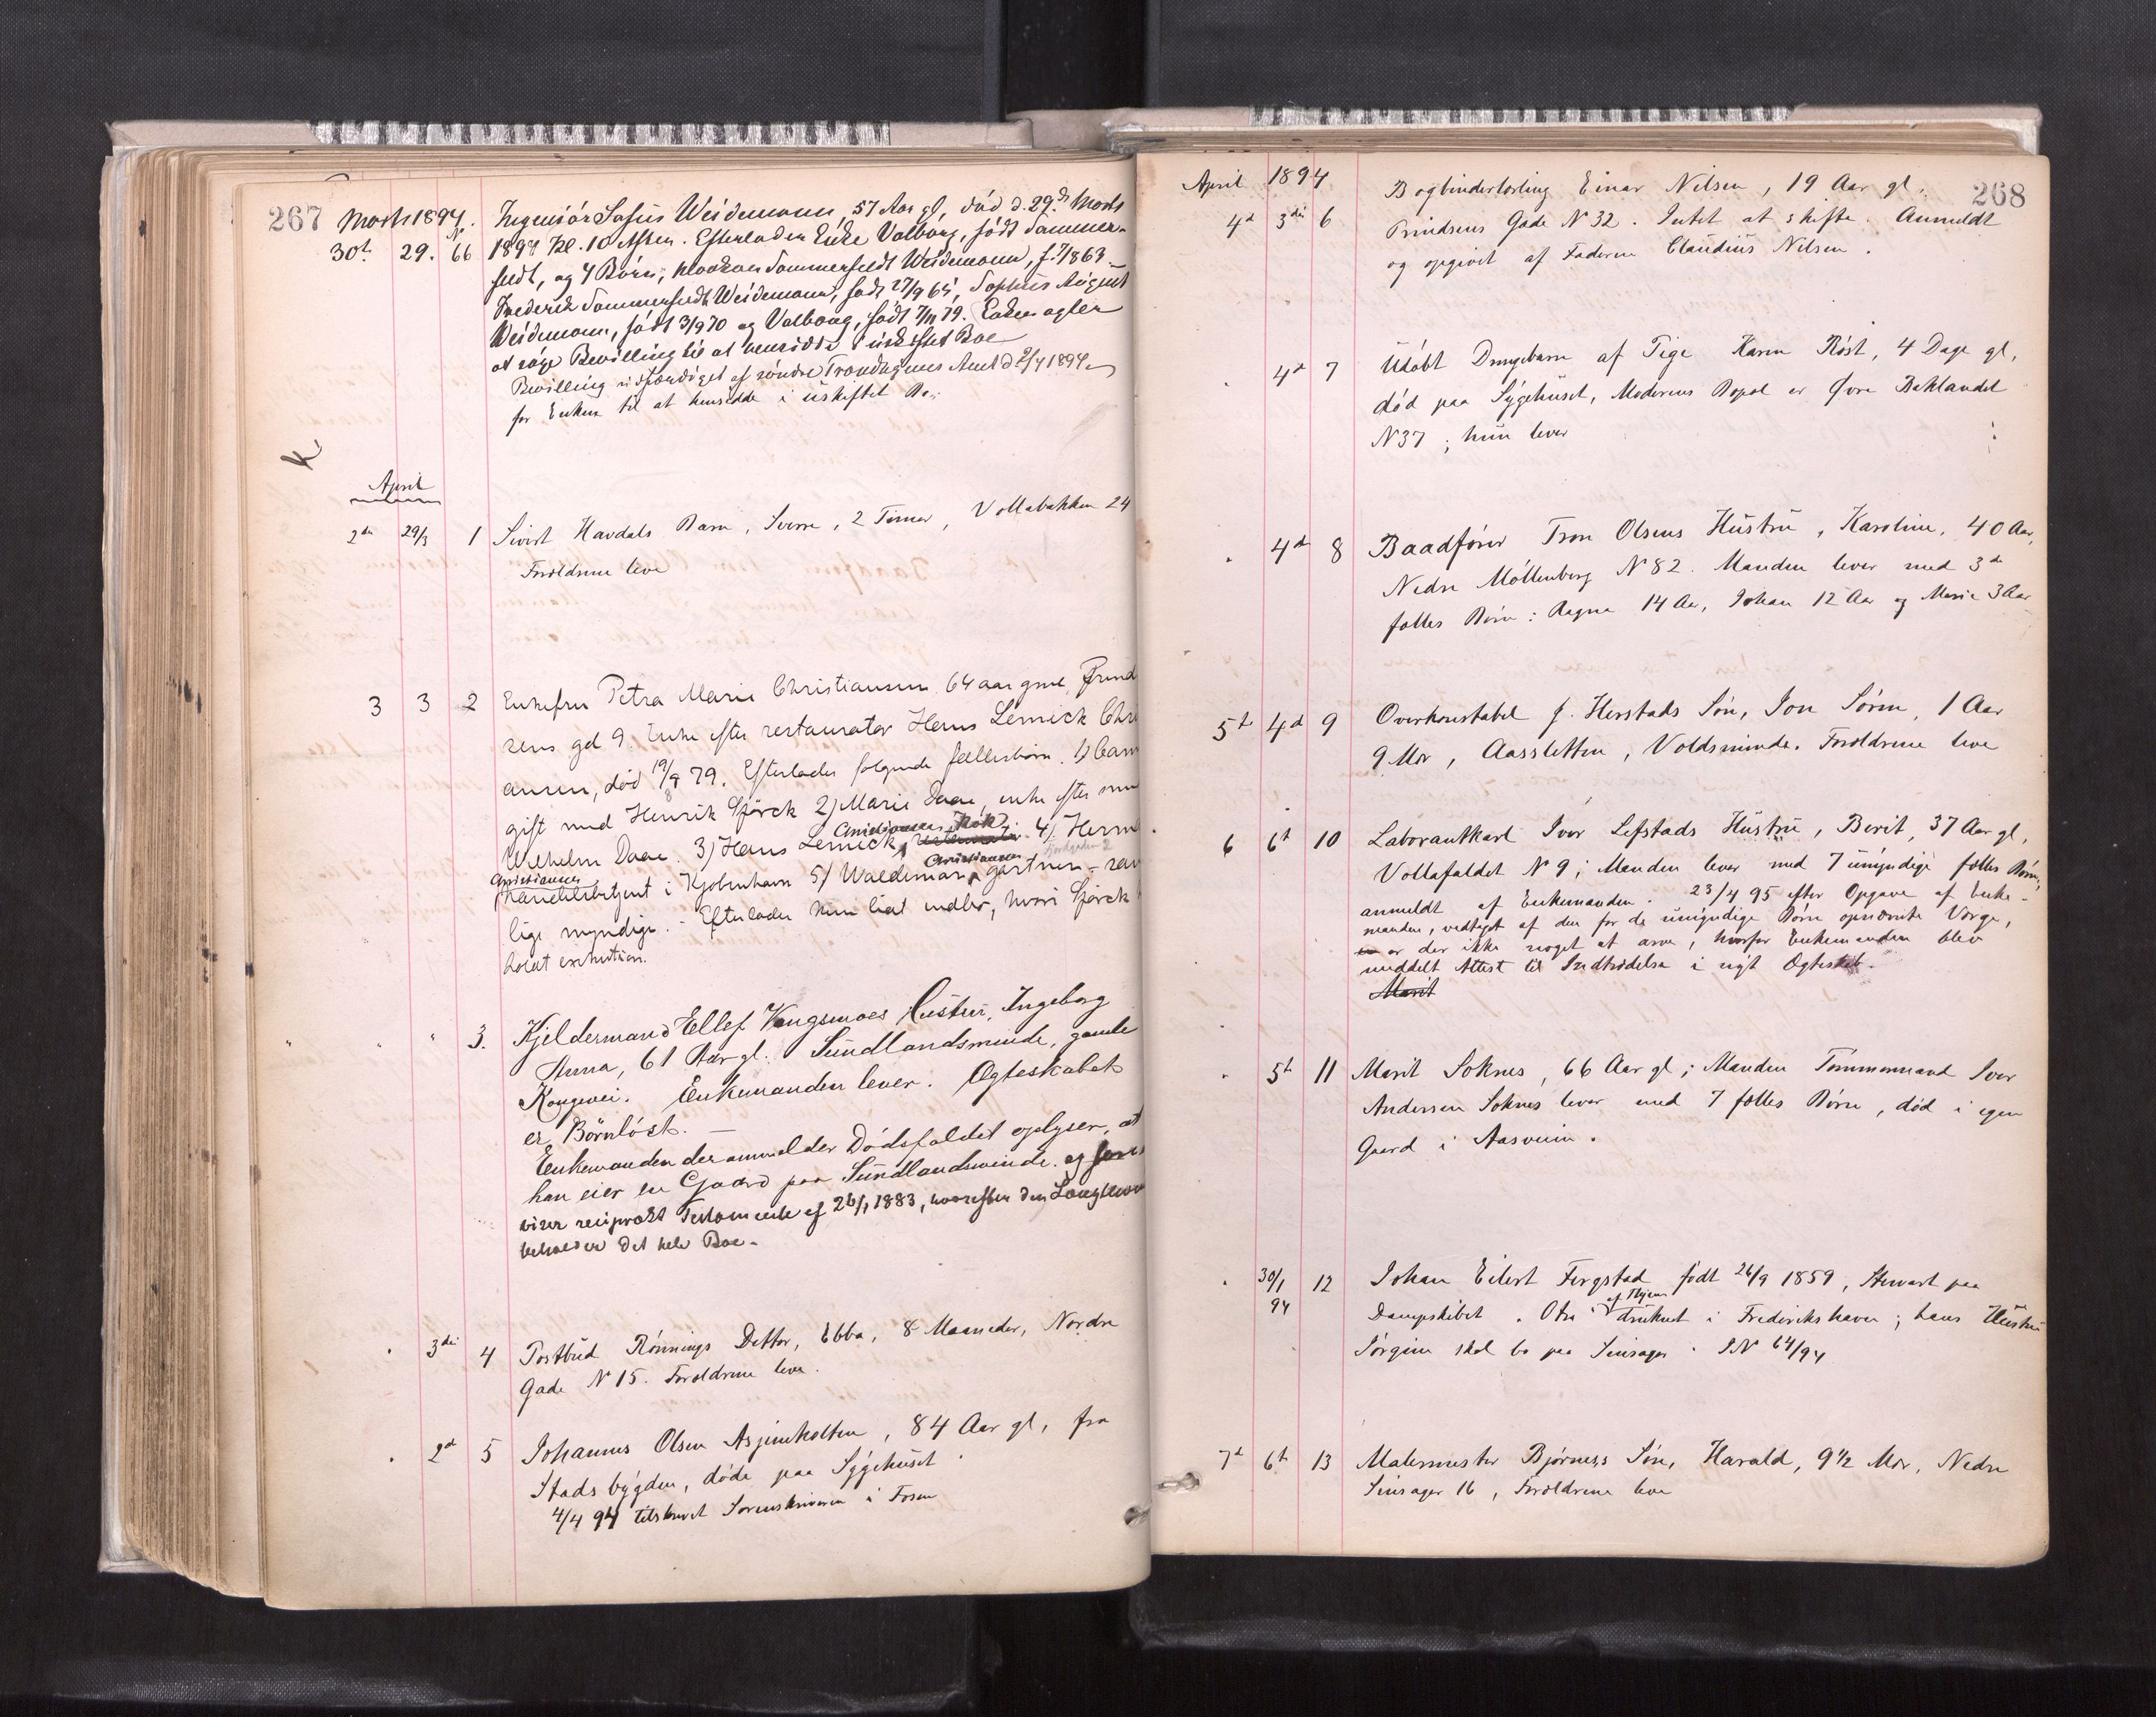 267 Marts 1894. Ingeniør Sofus Weidemann, 57 Aar gl, død d. 29de Marts
30t 29. No 66 1894 Kl. 10 Aften. Efterlader Enke Valborg, født Sammer-
feldt, og 4 Børn; Haakon Sommerfeldt Weidemann, f. 1863
Frederik Sommerfeldt Weidemann, født 27/9 65, Sophus August
Weidemann, født 3/9 70 og Valborg, født 7/11 79. Enken agter
at søge Bevilling til at hensidde i uskiftet Boe
Bevilling udfærdiget af søndre Trondhjems Amt d 2/4 1894
for Enken til at hensidde i uskiftet Bo.
K
April
2den 29/3 1 Sivert Havdals Barn, Sverre, 2 Timer, Vollabakken 24
Forældrene leve
3 3 2 Enkefru Petra Marie Christiansen 64 aar gml, Prind
sens gd 9. Enke efter restauratør Hans Lemick Chri
ansen, død 19/8 79. Efterlader følgende fællesbørn. 1)
gift med Henrik Spørck 2) Marie Daae, enke efter
Wilhelm Daae. 3) Hans Lemick Christiansen, Kok 4) Herm
Christiansen handelsbetjent i Kjøbenhavn 5) Waldemar Christiansen gartner -
lige myndige. - Efterlader kun lidt indbo, hvori Spørck
holdt exekution.
" " " 3. Kjeldermand Ellef Vangsmoes Hustru, Ingeborg
Anna, 61 Aar gl. Sundlandsminde, gamle
Kongevei. Enkemanden lever. Ægteskabet
er Børnløst. -
Enkemanden der anmelder Dødsfaldet oplyser, at
han eier en Gaard paa Sundlandsminde og fore
viser reciprokt Testamente af 26/1 1883, hvorefter den Længstlev
beholder det hele Boe.
" 3die 4 Postbud Rønnings Datter, Ebba, 8 Maaneder, Nordre
Gade N 15. Forældrene leve.
" 2d 5 Johannes Olsen Asjemholten, 84 Aar gl, fra
Stadsbygden, døde paa Sygehuset.
4/4 94 tilskrevet Sorenskriveren i Fosen
April 1894 268
4d 3die 6 Bogbinderlærling Einar Nilsen, 19 Aar gl.
Prindsens Gade N 32. Intet at skifte. Anmeldt
og opgivet af Faderen Claudius Nilsen.
" 4d 7 Udøbt Drengebarn af Pige Karen Røst, 4 Dage gl,
død paa Sygehuset, Moderens Bopæl er Øvre Baklandet
N 37; hun lever
" 4d 8 Baadfører Tron Olsens Hustru, Karoline, 40 Aar,
Nedre Møllenberg N 82. Manden lever med 3de
fælles Børn: Ragna 14 Aar, Johan 12 Aar og Marie 3 Aar
5t 4d 9 Overkonstabel J. Herstads Søn, Jon Søren, 1 Aar
9 Mdr, Aassletten, Voldsminde. Forældrene leve
6 6t 10 Laborantkarl Iver Lefstads Hustru, Berit, 37 Aar gl,
Vollafaldet N 9; Manden lever med 7 umyndige fælles Børn;
anmeldt af Enkemanden. 23/4 95 efter Opgave af Enke-
manden, vedtaget af den for de umyndige Børn opnævnte Værge,
er der ikke noget at arve, hvorfor Enkemanden blev
meddelt Attest til Indtrædelse i nyt Ægteskab.
Marit
" 5t 11 Marit Soknes, 66 Aar gl; Manden Tømmermand Iver
Andersen Soknes lever med 7 fælles Børn, død i egen
Gaard i Aasveien.
" 30/1 94 12 Johan Eilert Fergstad født 26/9 1859, Stewart paa
Dampskibet "Otra" af Thjem druknet i Frederikshavn; hans Hustru
Jørgine skal bo paa Sinsager. S.N 64/94
7d 6t 13 Malermester Bjørness Søn, Harald, 9 1/2 Mdr, Nedre
Sinsager 16, Forældrene leve